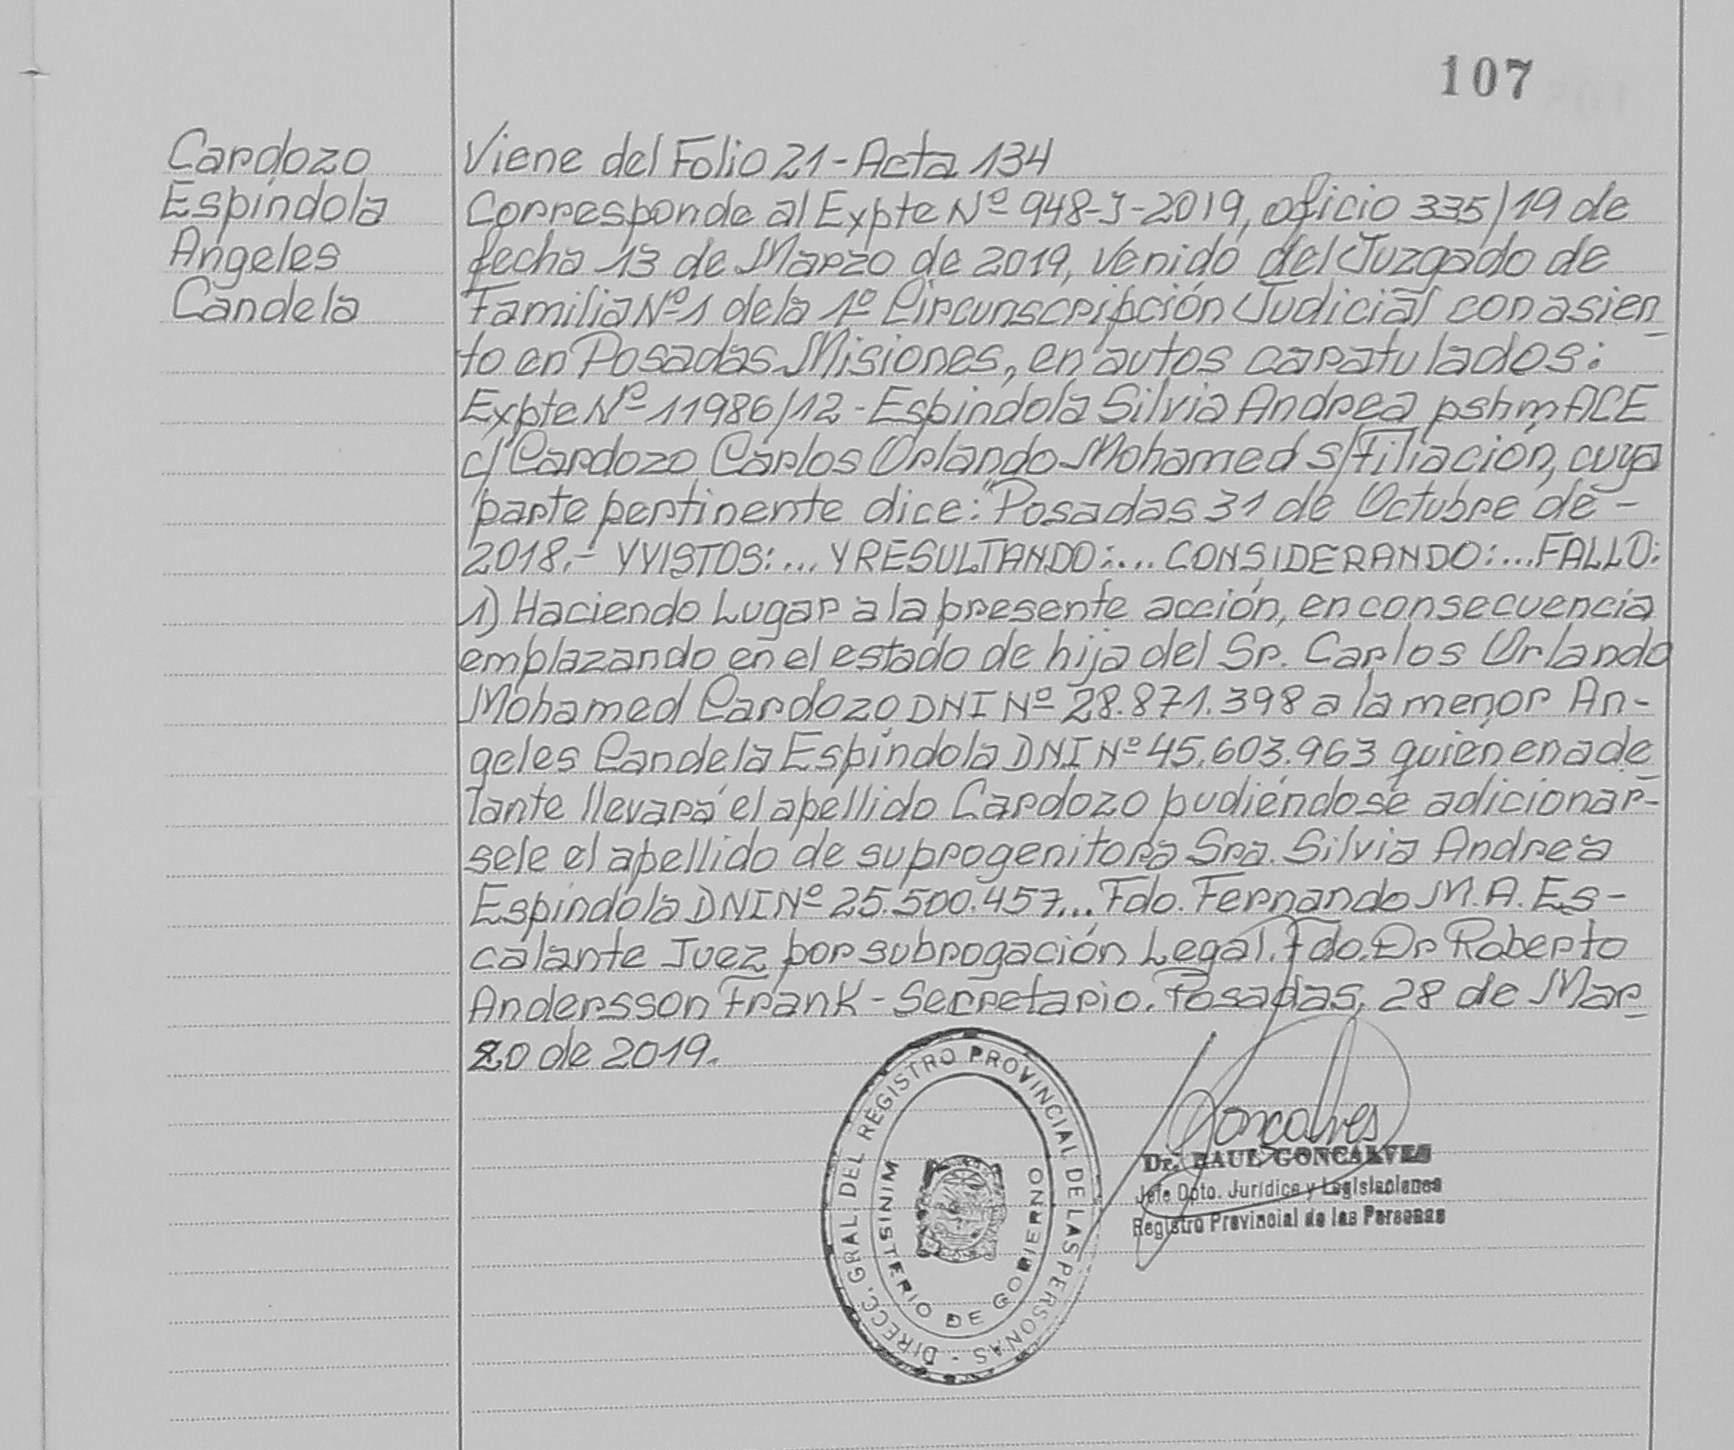 107
Cardozo
Espíndola
Angeles
Candela
Viene del Folio 21 - Acta 134
Corresponde al Expte Nº 948-J-2019, oficio 335/19 de
fecha 13 de Marzo de 2019, venido del Juzgado de
Familia Nº 1 de la 1º Circunscripción Judicial con asien
to en Posadas Misiones, en autos caratulados:
Expte Nº 11986/12 - Espíndola Silvia Andrea pshm ACE
c/ Cardozo Carlos Orlando Mohamed s/ Filiación, cuya
parte pertinente dice: "Posadas 31 de Octubre de -
2018.- Y VISTOS:... Y RESULTANDO:... CONSIDERANDO:... FALLO:
1) Haciendo Lugar a la presente acción, en consecuencia
emplazando en el estado de hija del Sr. Carlos Orlando
Mohamed Cardozo DNI Nº 28.871.398 a la menor An-
geles Candela Espíndola DNI Nº 45.603.963 quien en ade
lante llevará el apellido Cardozo pudiéndose adicionar-
sele el apellido de su progenitora Sra. Silvia Andrea
Espíndola DNI Nº 25.500.457... Fdo. Fernando M. A. Es-
calante Juez por subrogación Legal. Fdo. Dr Roberto
Andersson Frank - Secretario. Posadas, 28 de Mar
zo de 2019.
DIRECC. GRAL. DEL REGISTRO PROVINCIAL DE LAS PERSONAS -
MINISTERIO DE GOBIERNO
Goncalves
Dr. RAUL GONCALVES
Jefe Dpto. Jurídico y Legislaciones
Registro Provincial de las Personas